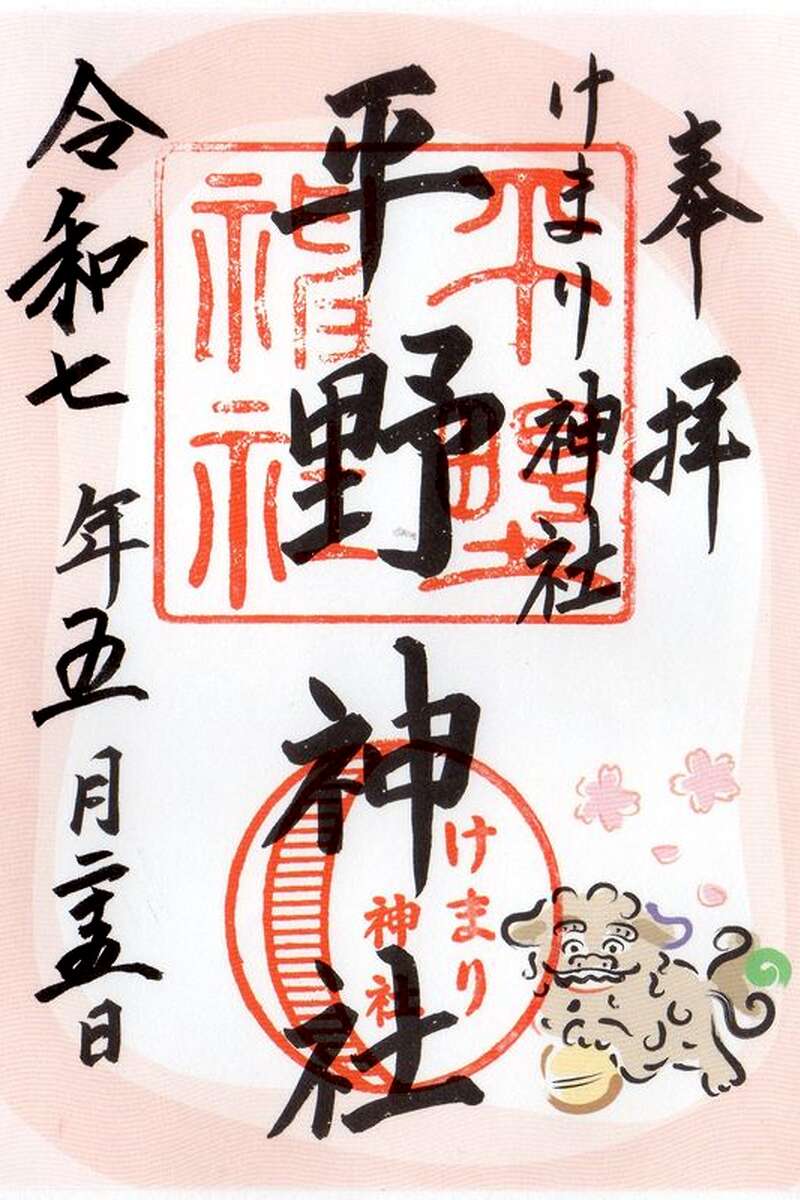 奉拝
けまり神社
平野神社
令和七年五月二十五日
平野
神社
けまり
神社